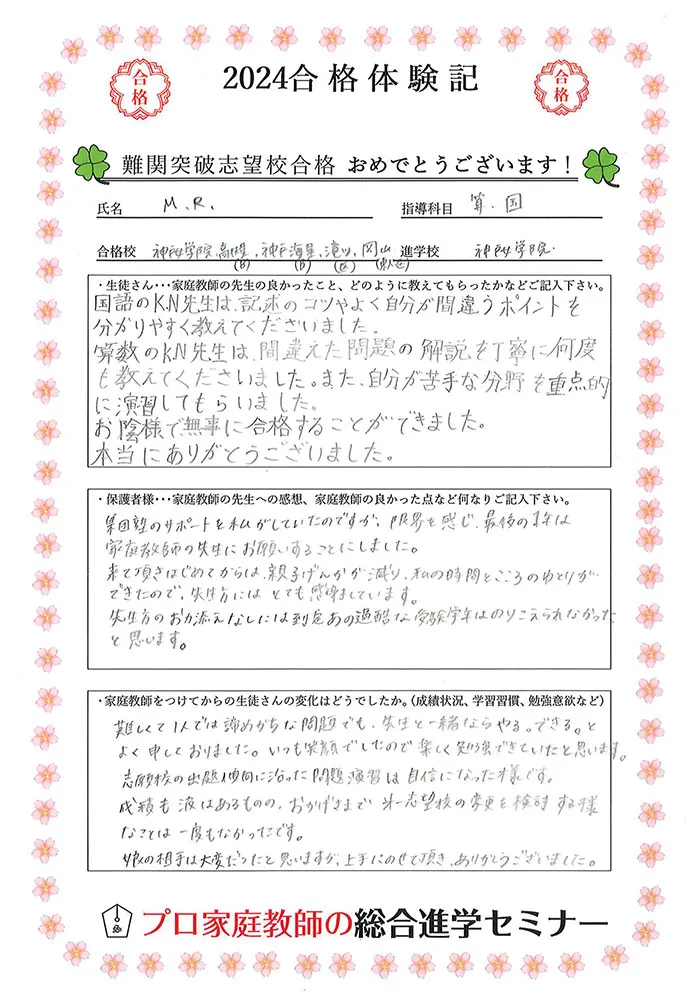 合格
2024合格体験記
合格
難関突破志望校合格 おめでとうございます！
氏名 M.R. 指導科目 算・国
合格校 神戸学院 神戸海星、滝川、岡山 進学校 神戸学院
・生徒さん・・・家庭教師の先生の良かったこと、どのように教えてもらったかなどご記入下さい。
国語のK.N先生は、記述のコツやよく自分が間違うポイントを
分かりやすく教えてくださいました。
算数のK.N先生は、間違えた問題の解説を丁寧に何度
も教えてくださいました。また、自分が苦手な分野を重点的
に演習してもらいました。
お陰様で無事に合格することができました。
本当にありがとうございました。
・保護者様・・・家庭教師の先生への感想、家庭教師の良かった点など何なりご記入下さい。
集団塾のサポートを私がしていたのですが、限界を感じ、最後の1年は
家庭教師の先生にお願いすることにしました。
来て頂きはじめてからは、親子げんかが減り、私の時間とこころのゆとりが
できたので、先生方にはとても感謝しています。
先生方のお力添えなしには到底あの過酷な受験学年はのりこえられなかった
と思います。
・家庭教師をつけてからの生徒さんの変化はどうでしたか。（成績状況、学習習慣、勉強意欲など）
難しくて1人では諦めがちな問題でも、先生と一緒ならやる。できる。と
よく申しておりました。いつも笑顔でしたので楽しく勉強できていたと思います。
志願校の出題傾向に沿った問題演習は自信になった様です。
成績も波はあるものの、おかげさまで 第一志望校の変更を検討する様
なことは一度もなかったです。
娘の相手は大変だったと思いますが、上手にのせて頂き、ありがとうございました。
プロ家庭教師の総合進学セミナー